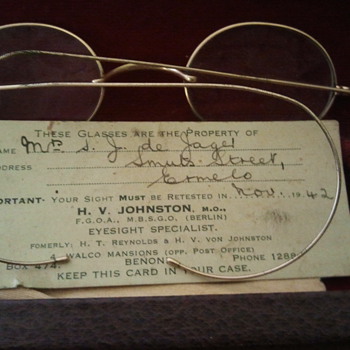 THESE GLASSES ARE THE PROPERTY OF
NAME Mrs S. J. de Jager
ADDRESS Smuts Street,
Ermelo
PORTANT- YOUR SIGHT MUST BE RETESTED IN Nov. 1942
H. V. JOHNSTON, M.O.,
F.G.O.A., M.B.S.G.O. (BERLIN)
EYESIGHT SPECIALIST.
FOMERLY: H. T. REYNOLDS & H. V. VON JOHNSTON
4, WALCO MANSIONS (OPP. POST OFFICE)
BOX 474. BENON PHONE 1288
KEEP THIS CARD IN YOUR CASE.